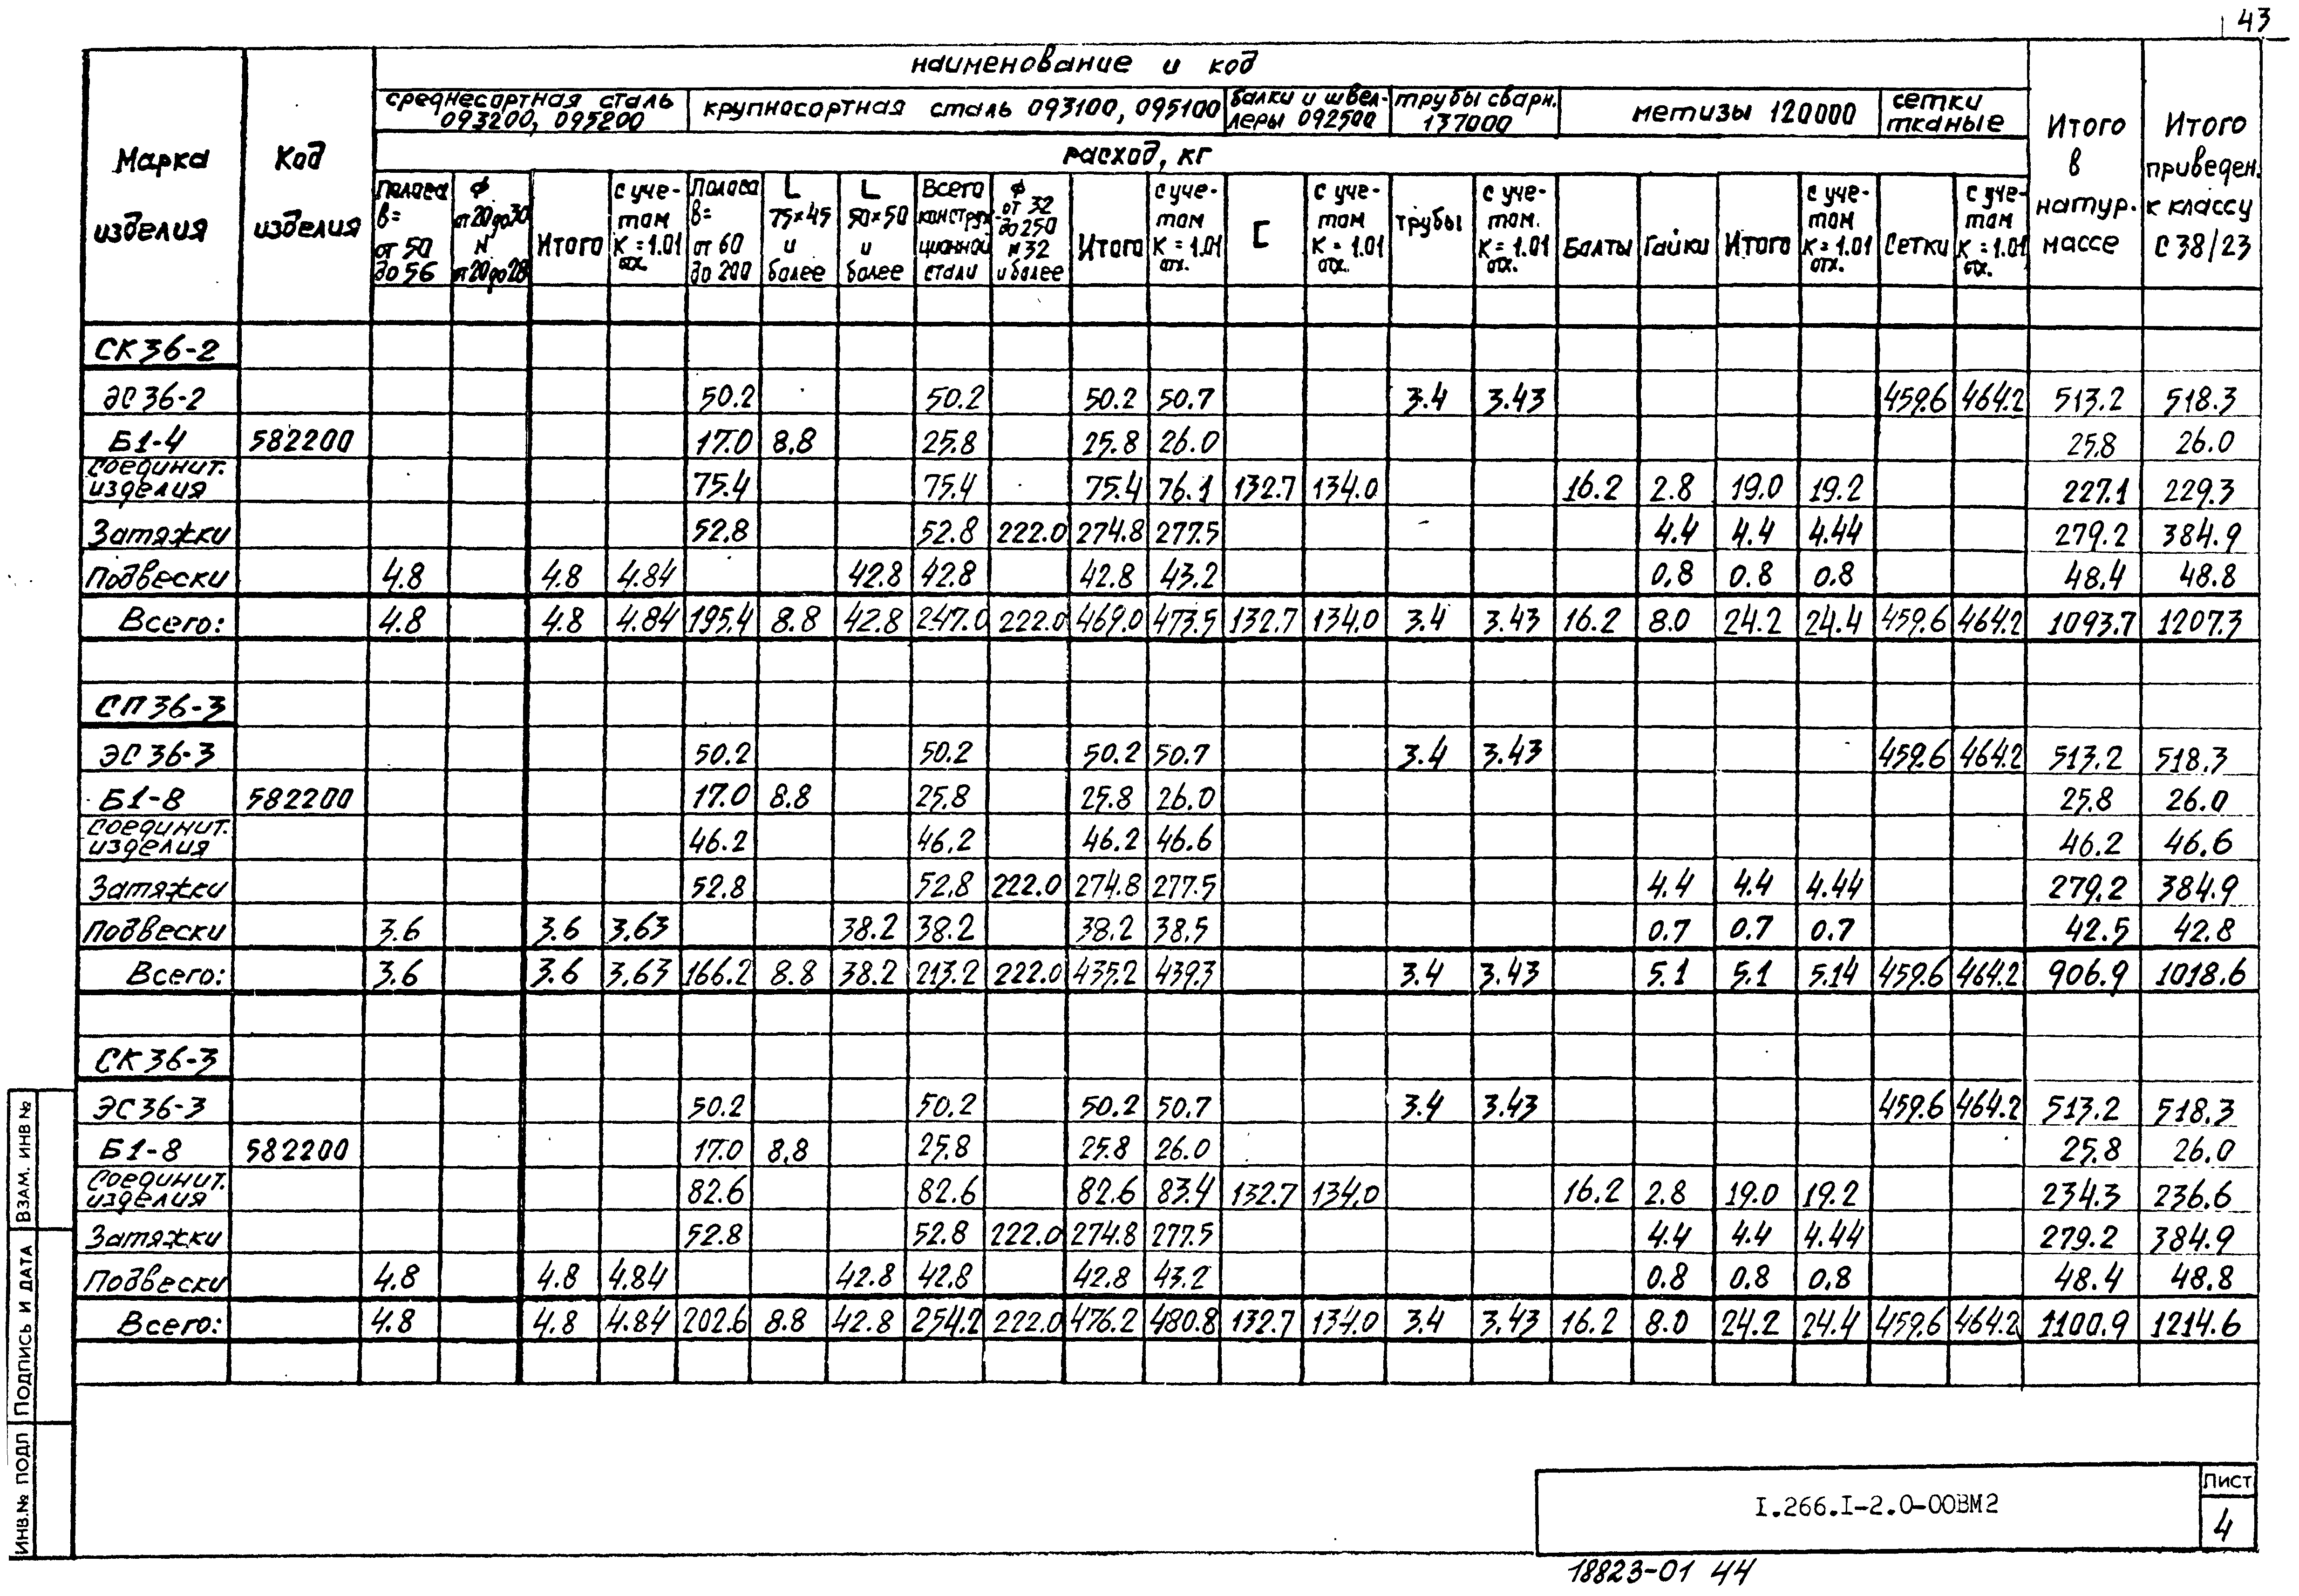 43
наименование и код
среднесортная сталь 093200, 095200 крупносортная сталь 093100, 095100 балки и швеллеры 092500 трубы сварн. 137000 метизы 120000 сетки тканые
Марка изделия Код изделия расход, кг Итого в натур. массе Итого приведен. к классу С 38/23
полоса в= от 50 до 56 ф от 20 до 30 N от 20 до 28 Итого с учетом К=1.01 отх. полоса в= от 60 до 200 L 75×45 и более L 50×50 и более Всего конструкционной стали ф от 32 до 250 N 32 и более Итого с учетом К=1.01 отх. [ с учетом К=1.01 отх. трубы с учетом К=1.01 отх. Болты Гайки Итого с учетом К=1.01 отх. Сетки с учетом К=1.01 отх.
СК36-2
ЭС36-2 50.2 50.2 50.2 50.7 3.4 3.43 459.6 464.2 513.2 518.3
Б1-4 582200 17.0 8.8 25.8 25.8 26.0 25.8 26.0
Соединит. изделия 75.4 75.4 75.4 76.1 132.7 134.0 16.2 2.8 19.0 19.2 227.1 229.3
Затяжки 52.8 52.8 222.0 274.8 277.5 4.4 4.4 4.44 279.2 384.9
Подвески 4.8 4.8 4.84 42.8 42.8 42.8 43.2 0.8 0.8 0.8 48.4 48.8
Всего: 4.8 4.8 4.84 195.4 8.8 42.8 247.0 222.0 469.0 473.5 132.7 134.0 3.4 3.43 16.2 8.0 24.2 24.4 459.6 464.2 1093.7 1207.3
СП36-3
ЭС36-3 50.2 50.2 50.2 50.7 3.4 3.43 459.6 464.2 513.2 518.3
Б1-8 582200 17.0 8.8 25.8 25.8 26.0 25.8 26.0
Соединит. изделия 46.2 46.2 46.2 46.6 46.2 46.6
Затяжки 52.8 52.8 222.0 274.8 277.5 4.4 4.4 4.44 279.2 384.9
Подвески 3.6 3.6 3.63 38.2 38.2 38.2 38.5 0.7 0.7 0.7 42.5 42.8
Всего: 3.6 3.6 3.63 166.2 8.8 38.2 213.2 222.0 435.2 439.3 3.4 3.43 5.1 5.1 5.14 459.6 464.2 906.9 1018.6
СК36-3
ЭС36-3 50.2 50.2 50.2 50.7 3.4 3.43 459.6 464.2 513.2 518.3
Б1-8 582200 17.0 8.8 25.8 25.8 26.0 25.8 26.0
Соединит. изделия 82.6 82.6 82.6 83.4 132.7 134.0 16.2 2.8 19.0 19.2 234.3 236.6
Затяжки 52.8 52.8 222.0 274.8 277.5 4.4 4.4 4.44 279.2 384.9
Подвески 4.8 4.8 4.84 42.8 42.8 42.8 43.2 0.8 0.8 0.8 48.4 48.8
Всего: 4.8 4.8 4.84 202.6 8.8 42.8 254.2 222.0 476.2 480.8 132.7 134.0 3.4 3.43 16.2 8.0 24.2 24.4 459.6 464.2 1100.9 1214.6
ИНВ.№ ПОДП ПОДПИСЬ И ДАТА ВЗАМ. ИНВ №
I.266.I-2.0-00ВМ2
Лист
4
18823-01 44